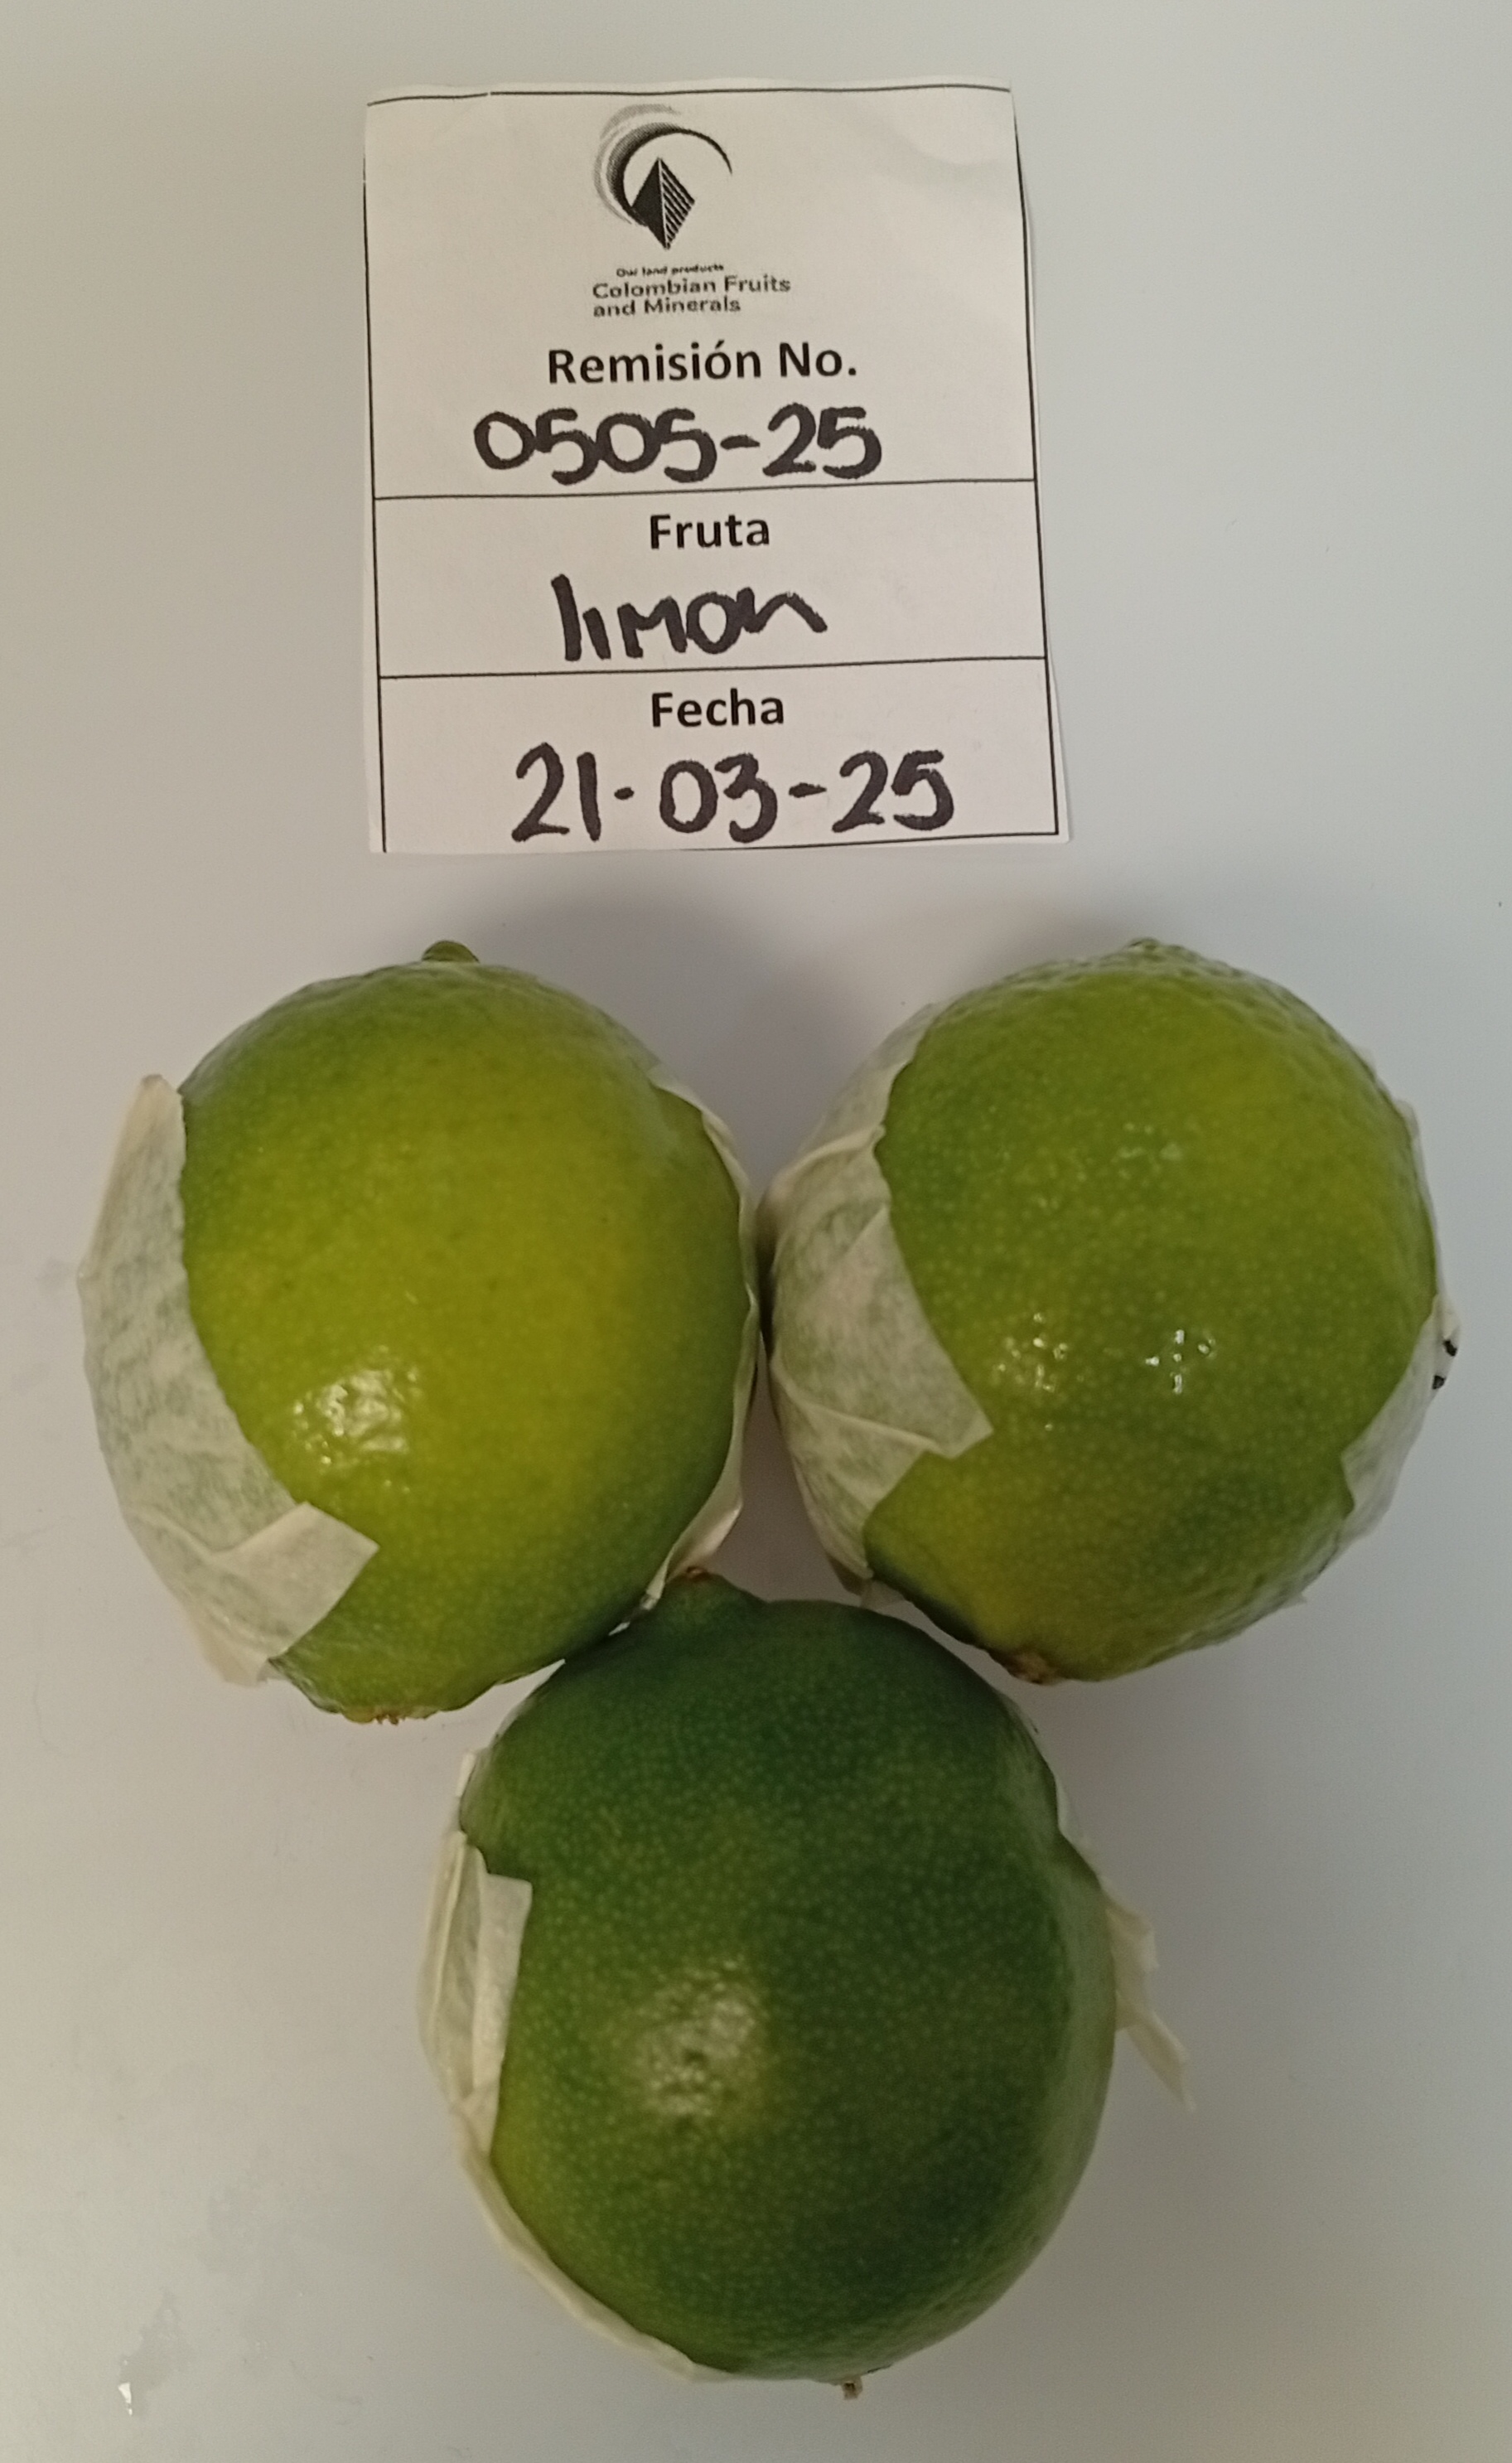 Our land products
Colombian Fruits
and Minerals
Remisión No.
0505-25
Fruta
limon
Fecha
21-03-25